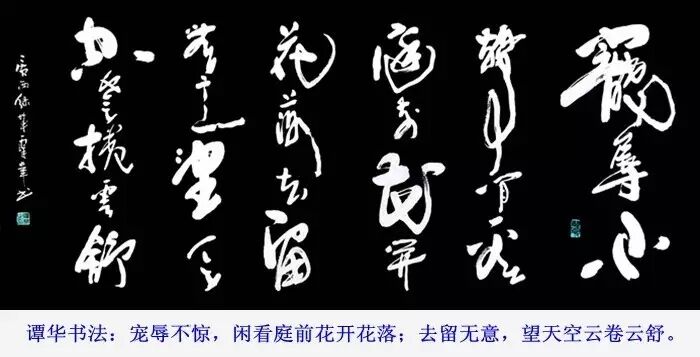 寵辱不
驚閒看
庭前花開
花落去留
無意望天
空雲捲雲舒
谭华书法：宠辱不惊，闲看庭前花开花落；去留无意，望天空云卷云舒。